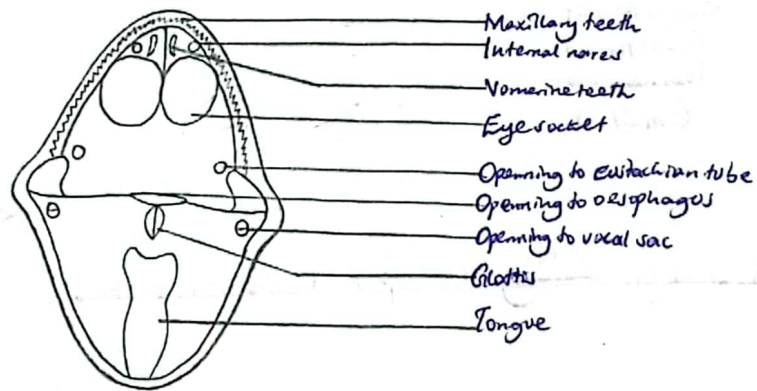 Maxillary teeth
Internal nares
Vomerine teeth
Eye socket
Openning to Eustachian tube
Openning to oesophagus
Openning to vocal sac
Glottis
Tongue